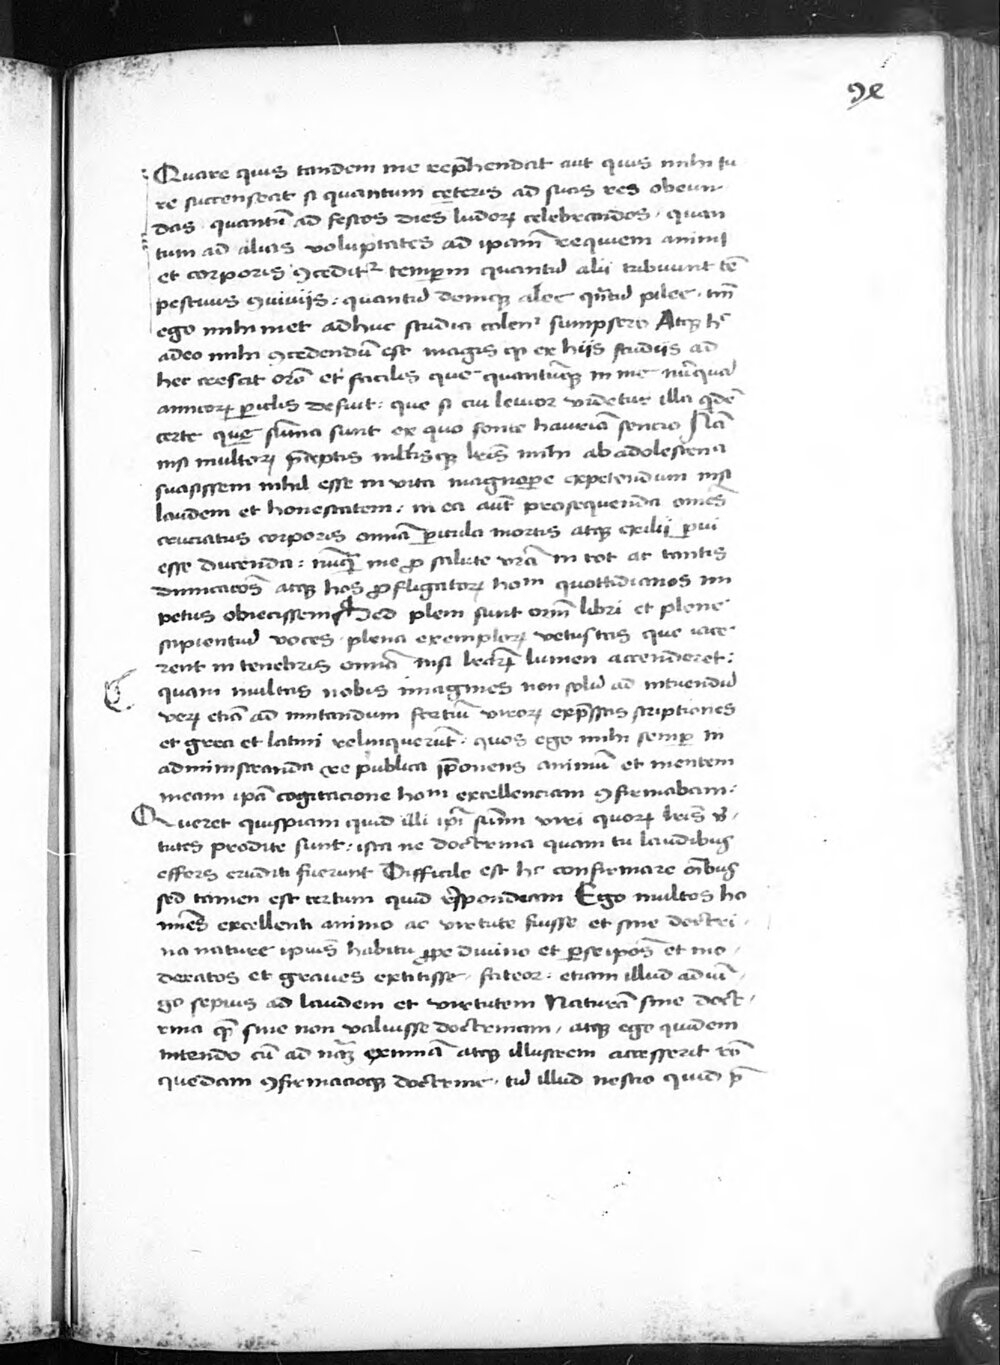 92
Quare quis tandem me rep̄hendat aut quis mihi iu
re succenseat si quantum ceteris ad suas res obeun-
das quantū ad festos dies ludoꝝ celebrandos, quan
tum ad alias voluptates ad ipam̄ requiem animi
et corporis ꝯceditr temꝑm quantū alii tribuunt tē
pestiuis ꝯuiuiis: quantū deniqꝫ alee qn̄tū pilee, tm̄
ego mihi met adhuc studia colenr sumpsero Atqꝫ hc
adeo mihi ꝯcedendū est magis qꝫ ex hiis studiis ad
hec crescit orō et facilis que quantūcūqꝫ in me nūcquā
amicoꝝ ꝑiclis defuit: que si cui leuior videtur illa q̄dē
certe que sūma sunt ex quo fonte hauriā sencio Nā
nisi multoꝝ p̄ceptis mltisqꝫ lrīs mihi ab adolescencia
suasissem nihil esse in vita magnoꝑe expetendum nisi
laudem et honestatem: in ea aut̄ prosequenda omēs
cruciatus corporis omnia ꝑicula mortis atqꝫ exilii ꝑui
esse ducenda: nūqꝫ me ꝓ salute vrā in tot ac tantis
dimicacōes atqꝫ hos ꝓfligatoꝝ hoīm quottidianos im
petus obiecissem Sed pleni sunt om̄s libri et plene
sapientiū voces, plena exemploꝝ vetustas que iace
rent in tenebris omnia nisi lrāꝝ lumen accenderet:
quam multas nobis imagines non solū ad intuendū
veꝝ etiā ad imitandum fortiū viroꝝ exp̄ssas scriptiones
et greci et latini relinquerūt: quos ego mihi semꝑ in
administranda re publica ꝓponens animū et mentem
meam ipā cogitacione hoīm excellenciam ꝯfirmabam:
Queret quispiam quid illi ipī sūmi viri quoꝝ lrīs vir-
tutes prodite sunt: ista ne doctrina quam tu laudibus
effers eruditi fuerunt Difficile est hc confirmare oībus
sed tamen est certum quid r̄spondeam Ego multos ho
mīes excellenti animo ac virtute fuisse et sine doctri-
na nature ipius habitu ꝓpe diuino et ꝑse ipōs et mo-
deratos et graues extitisse, fateor: etiam illud adiū-
go sepius ad laudem et virtutem Naturā sine doct-
rina qꝫ sine non valuisse doctrinam, atqꝫ ego quidem
intendo cū ad nāꝫ eximiā atqꝫ illustrem accesserit rō
quedam ꝯfirmacioqꝫ doctrine, tū illud nescio quid p̄